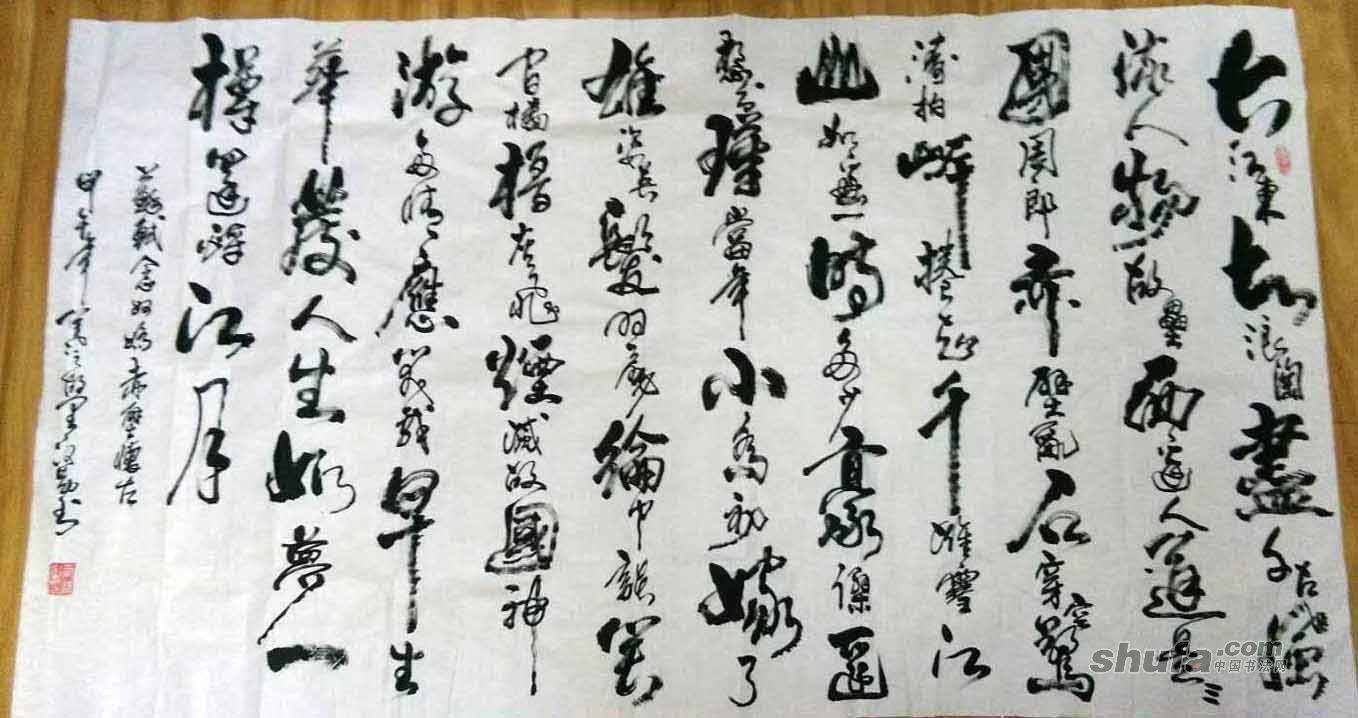 大江東去浪淘盡千古風
流人物故壘西邊人道是三
國周郎赤壁亂石穿空驚
濤拍岸捲起千堆雪江
山如畫一時多少豪傑遙
想公瑾當年小喬初嫁了
雄姿英發羽扇綸巾談笑
間檣櫓灰飛煙滅故國神
游多情應笑我早生
華髮人生如夢一
樽還酹江月
蘇軾念奴嬌赤壁懷古
甲午年
shufa.com
中国书法网